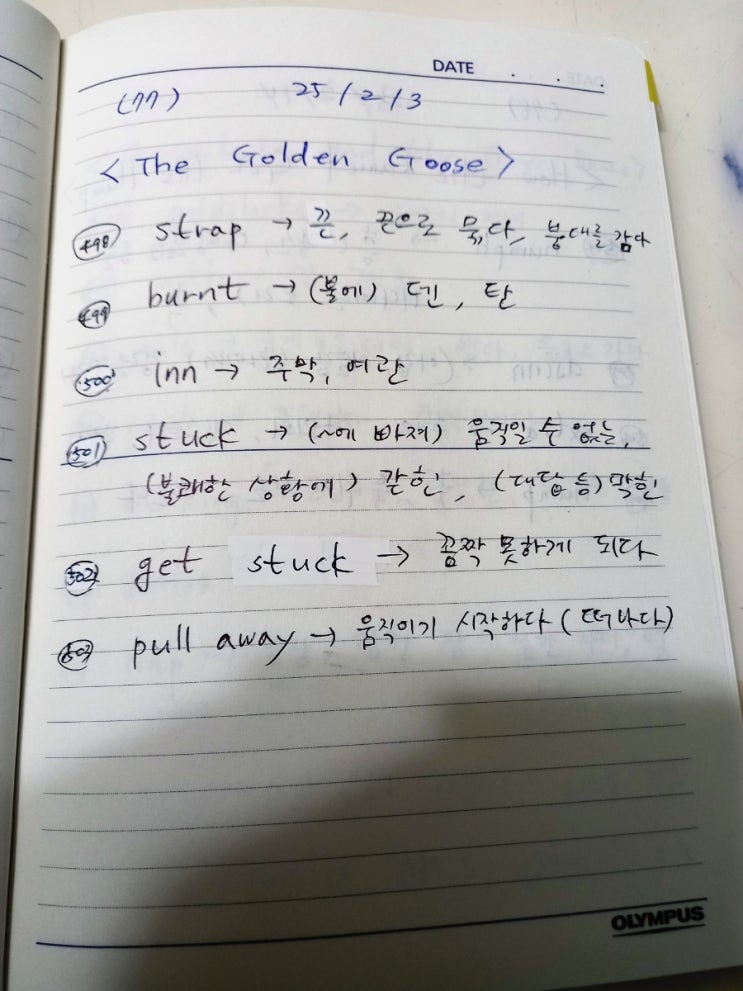 DATE . . .
(77) 25/2/3
<The Golden Goose>
498 strap → 끈, 끈으로 묶다, 붕대를 감다
499 burnt → (불에) 덴, 탄
500 inn → 주막, 여관
501 stuck → (~에 빠져) 움직일 수 없는,
(불쾌한 상황에) 갇힌, (대답 등) 막힌
502 get stuck → 꼼짝 못하게 되다
503 pull away → 움직이기 시작하다 (떠나다)
OLYMPUS